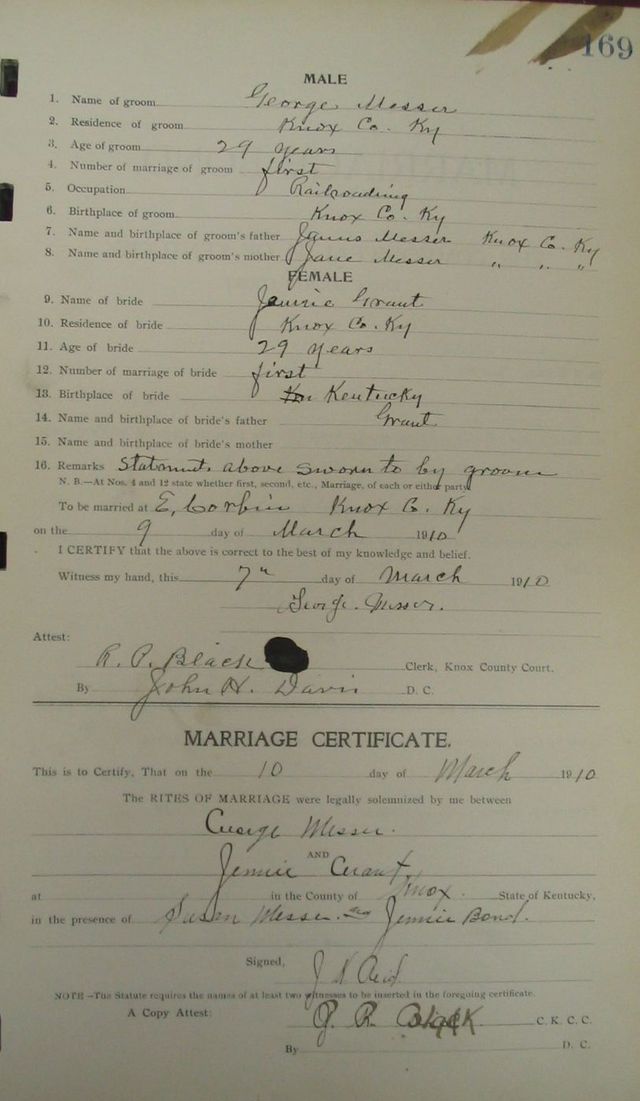 169
MALE
1. Name of groom George Messer
2. Residence of groom Knox Co. Ky
3. Age of groom 29 years
4. Number of marriage of groom first
5. Occupation Railroading
6. Birthplace of groom Knox Co. Ky
7. Name and birthplace of groom's father Messer Knox Co. Ky
8. Name and birthplace of groom's mother Jane Messer " " "
FEMALE
9. Name of bride Jennie Grant
10. Residence of bride Knox Co. Ky
11. Age of bride 29 years
12. Number of marriage of bride first
13. Birthplace of bride Kentucky
14. Name and birthplace of bride's father Grant
15. Name and birthplace of bride's mother
16. Remarks Statements above sworn to by groom
N. B.—At Nos. 4 and 12 state whether first, second, etc., Marriage, of each or either party.
To be married at E, Corbin Knox Co. Ky
on the 9 day of March 1910
I CERTIFY that the above is correct to the best of my knowledge and belief.
Witness my hand, this 7th day of March 1910
George Messer.
Attest:
R. P. Black Clerk, Knox County Court.
By John H. Davis D. C.
MARRIAGE CERTIFICATE.
This is to Certify, That on the 10 day of March 1910
The RITES OF MARRIAGE were legally solemnized by me between
George Messer.
AND
Jennie Grant
at in the County of Knox. State of Kentucky,
in the presence of Susan Messer. and Jennie Bond.
Signed, J N
NOTE—The Statute requires the names of at least two witnesses to be inserted in the foregoing certificate.
A Copy Attest: Black C. K. C. C.
By D. C.